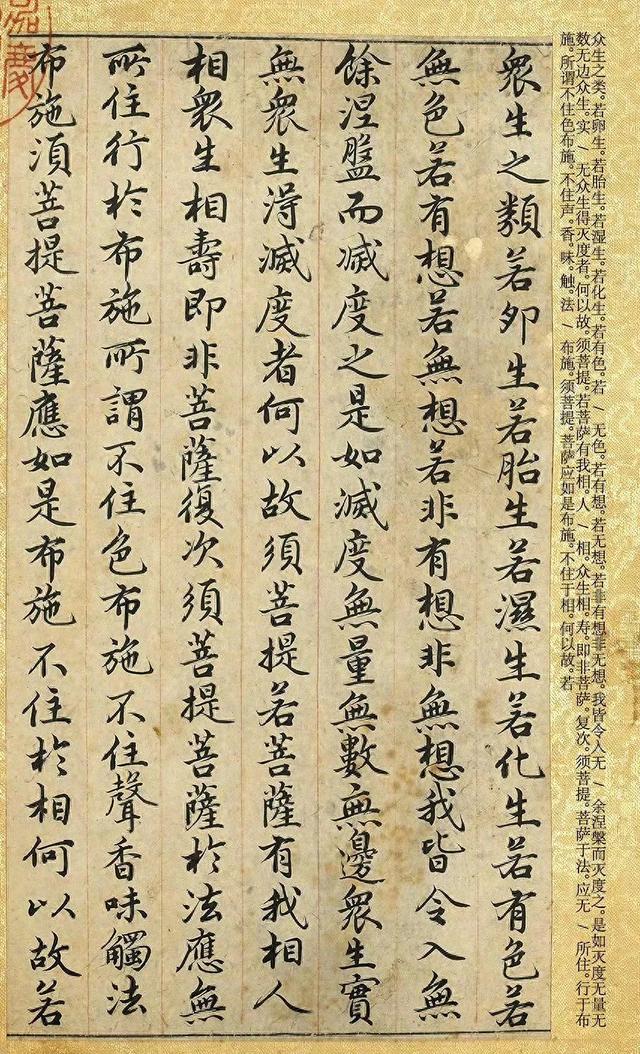 众生之类。若卵生。若胎生。若湿生。若化生。若有色。若/无色。若有想。若无想。若非有想非无想。我皆令入无/余涅槃而灭度之。是如灭度无量无
数无边众生。实/无众生得灭度者。何以故。须菩提。若菩萨有我相。人/相。众生相。寿。即非菩萨。复次。须菩提。菩萨于法。应无/所住。行于布
施。所谓不住色布施。不住声。香。味。触。法/布施。须菩提。菩萨应如是布施。不住于相。何以故。若
衆生之類若夘生若胎生若濕生若化生若有色若
無色若有想若無想若非有想非無想我皆令入無
餘涅盤而滅度之是如滅度無量無數無邊衆生實
無衆生得滅度者何以故須菩提若菩薩有我相人
相衆生相壽即非菩薩復次須菩提菩薩於法應無
所住行於布施所謂不住色布施不住聲香味觸法
布施須菩提菩薩應如是布施不住於相何以故若